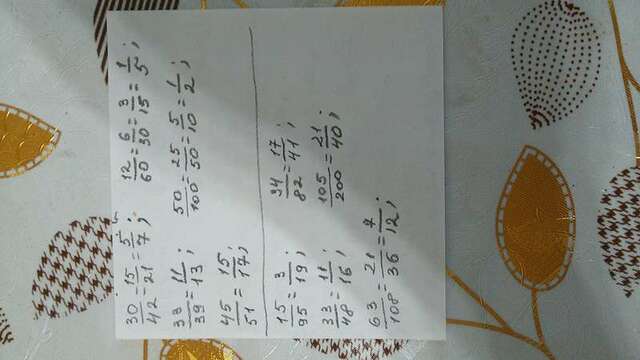 30/42 = 15/21 = 5/7; 12/60 = 6/30 = 3/15 = 1/5;
33/39 = 11/13; 50/100 = 25/50 = 5/10 = 1/2;
45/51 = 15/17;
15/95 = 3/19; 34/82 = 17/41;
33/48 = 11/16; 105/200 = 21/40;
63/108 = 21/36 = 7/12;